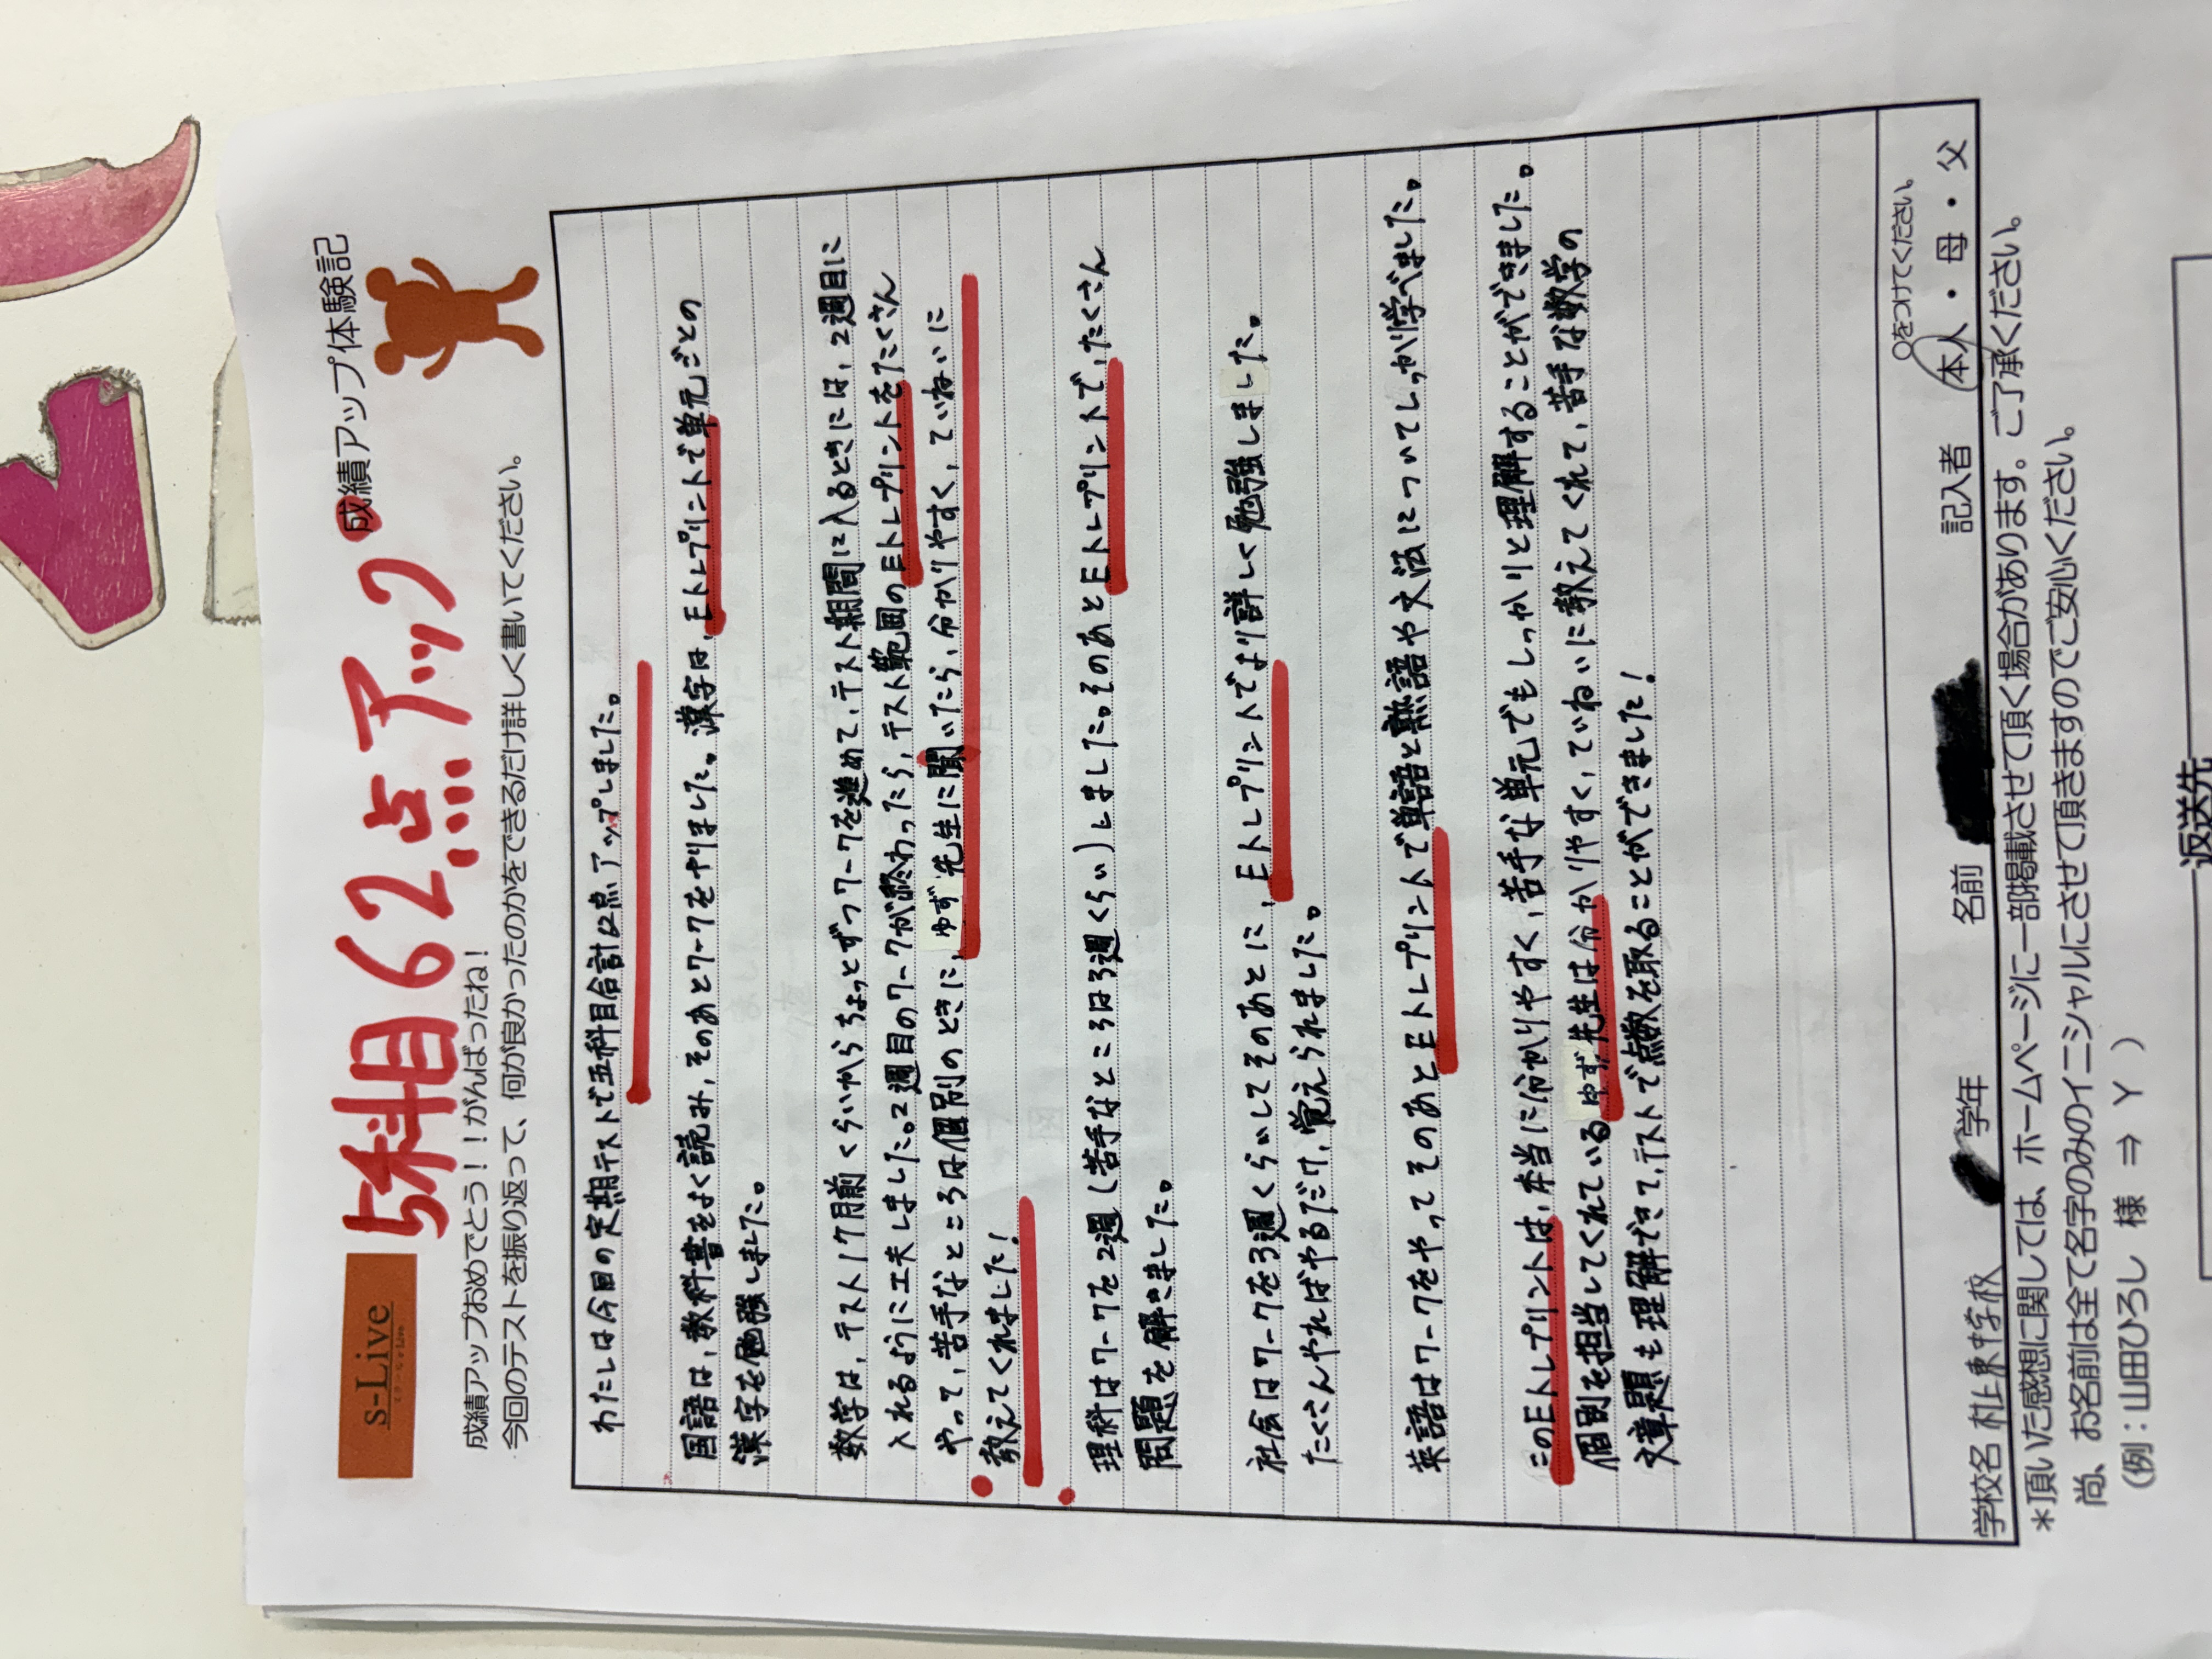 s-Live
5科目62点アップ
成績アップ体験記
成績アップおめでとう！！がんばったね！
今回のテストを振り返って、何が良かったのかをできるだけ詳しく書いてください。
わたしは今回の定期テストで五科目合計62点アップしました。
国語は、教科書をよく読み、そのあとワークをやりました。漢字は、Eトレプリントで単元ごとの
漢字を勉強しました。
数学は、テスト1ヶ月前くらいからちょっとずつワークを進めて、テスト期間に入るときには、2週目に
入れるように工夫しました。2週目のワークが終わったら、テスト範囲のEトレプリントをたくさん
やって、苦手なところは個別のときに、ゆず先生に聞いたら、分かりやすく、ていねいに
教えてくれました！
理科はワークを2週(苦手なところは3週くらい)しました。そのあとEトレプリントで、たくさん
問題を解きました。
社会はワークを3週くらいしてそのあとに、Eトレプリントでより詳しく勉強しました。
たくさんやればやるだけ、覚えられました。
英語はワークをやってそのあとEトレプリントで単語と熟語や文法についてしっかり学べました。
このEトレプリントは、本当に分かりやすく、苦手な単元でもしっかりと理解することができました。
個別を担当してくれているゆず先生は分かりやすく、ていねいに教えてくれて、苦手な数学の
文章題も理解できて、テストで点数を取ることができました！
○をつけてください。
学校名 村上東中学校 学年 名前 記入者 本人・母・父
＊頂いた感想に関しては、ホームページに一部掲載させて頂く場合があります。ご了承ください。
尚、お名前は全て名字のみのイニシャルにさせて頂きますのでご安心ください。
（例：山田ひろし 様 ⇒ Y ）
返送先